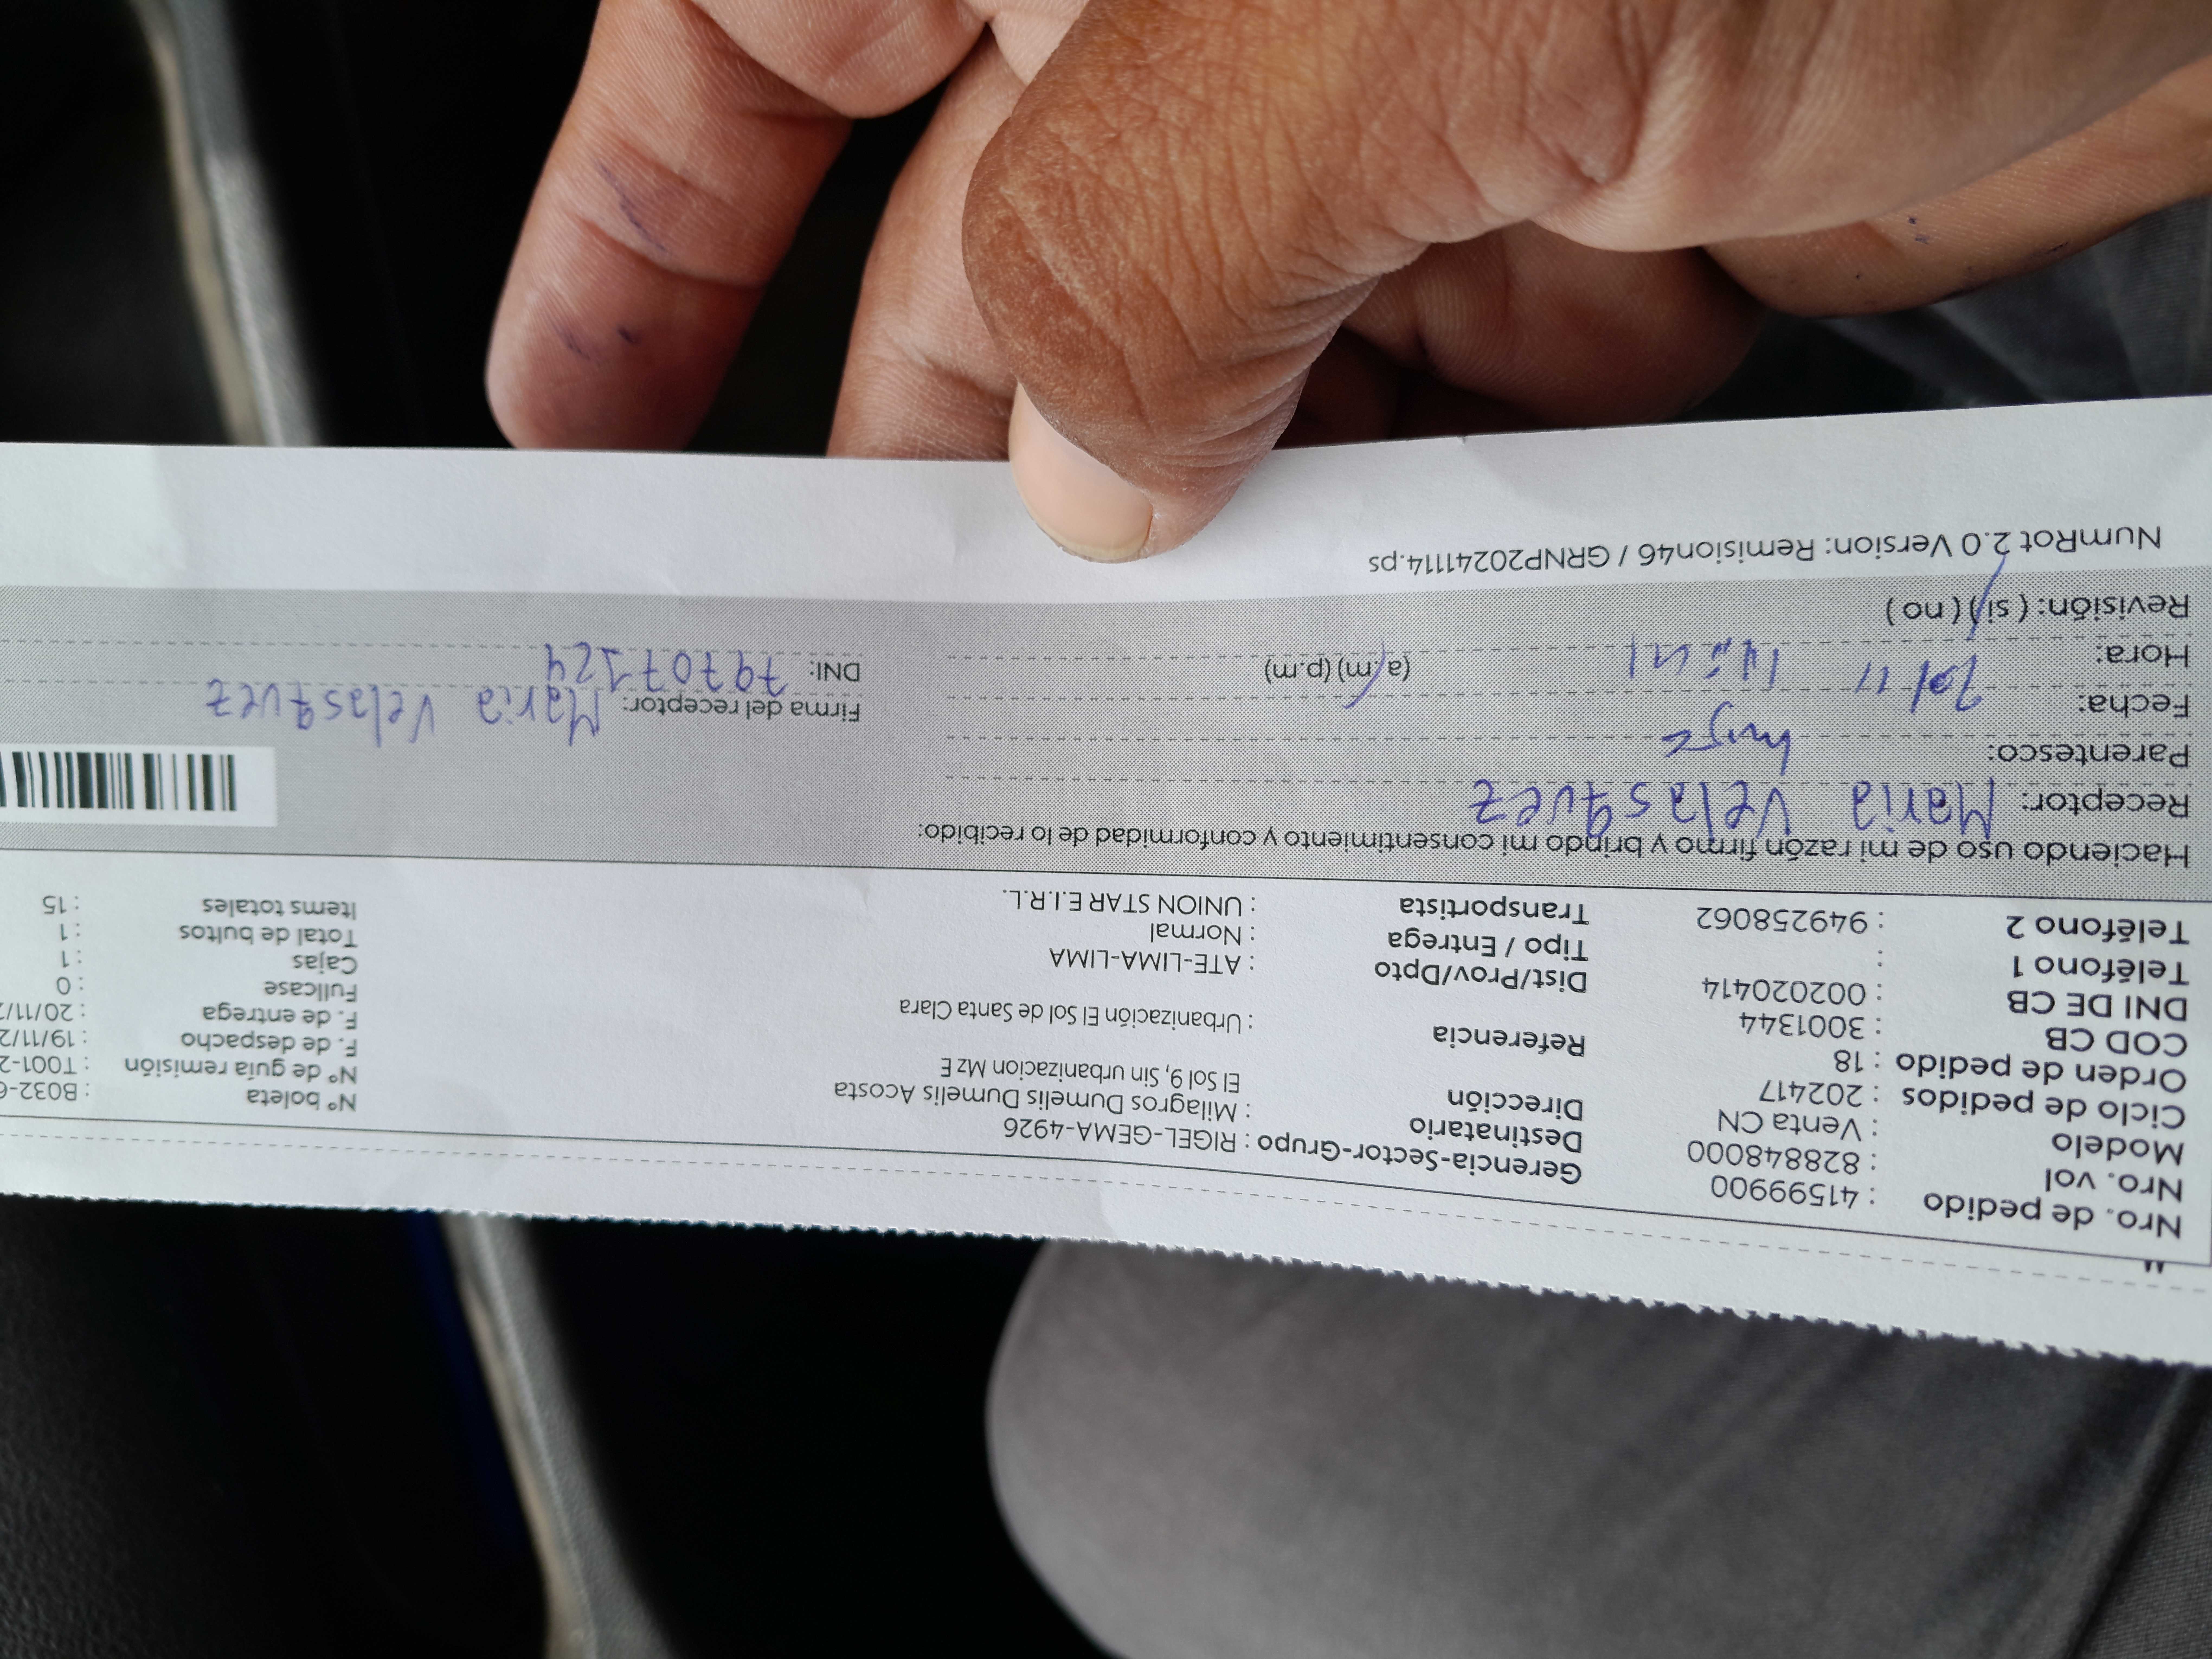 Nro. de pedido : 41599900
Nro. vol : 828848000
Modelo : Venta CN
Ciclo de pedidos : 202417
Orden de pedido : 18
COD CB : 3001344
DNI DE CB : 002020414
Teléfono 1 :
Teléfono 2 : 949258062
Gerencia-Sector-Grupo : RIGEL-GEMA-4926
Destinatario : Milagros Dumelis Dumelis Acosta
Dirección El Sol 9, Sin urbanizacion Mz E
Referencia : Urbanización El Sol de Santa Clara
Dist/Prov/Dpto : ATE-LIMA-LIMA
Tipo / Entrega : Normal
Transportista : UNION STAR E.I.R.L.
N° boleta : B032-6
N° de guía remisión : T001-2
F. de despacho : 19/11/2
F. de entrega : 20/11/2
Fullcase : 0
Cajas : 1
Total de bultos : 1
Items totales : 15
Haciendo uso de mi razón firmo y brindo mi consentimiento y conformidad de lo recibido:
Receptor: Maria Velasquez
Parentesco:
Fecha: 20/11
Hora: (a.m) (p.m)
Revisión: ( si ) ( no )
Firma del receptor: Maria Velasquez
DNI: 79707124
NumRot 2.0 Version: Remision46 / GRNP20241114.ps